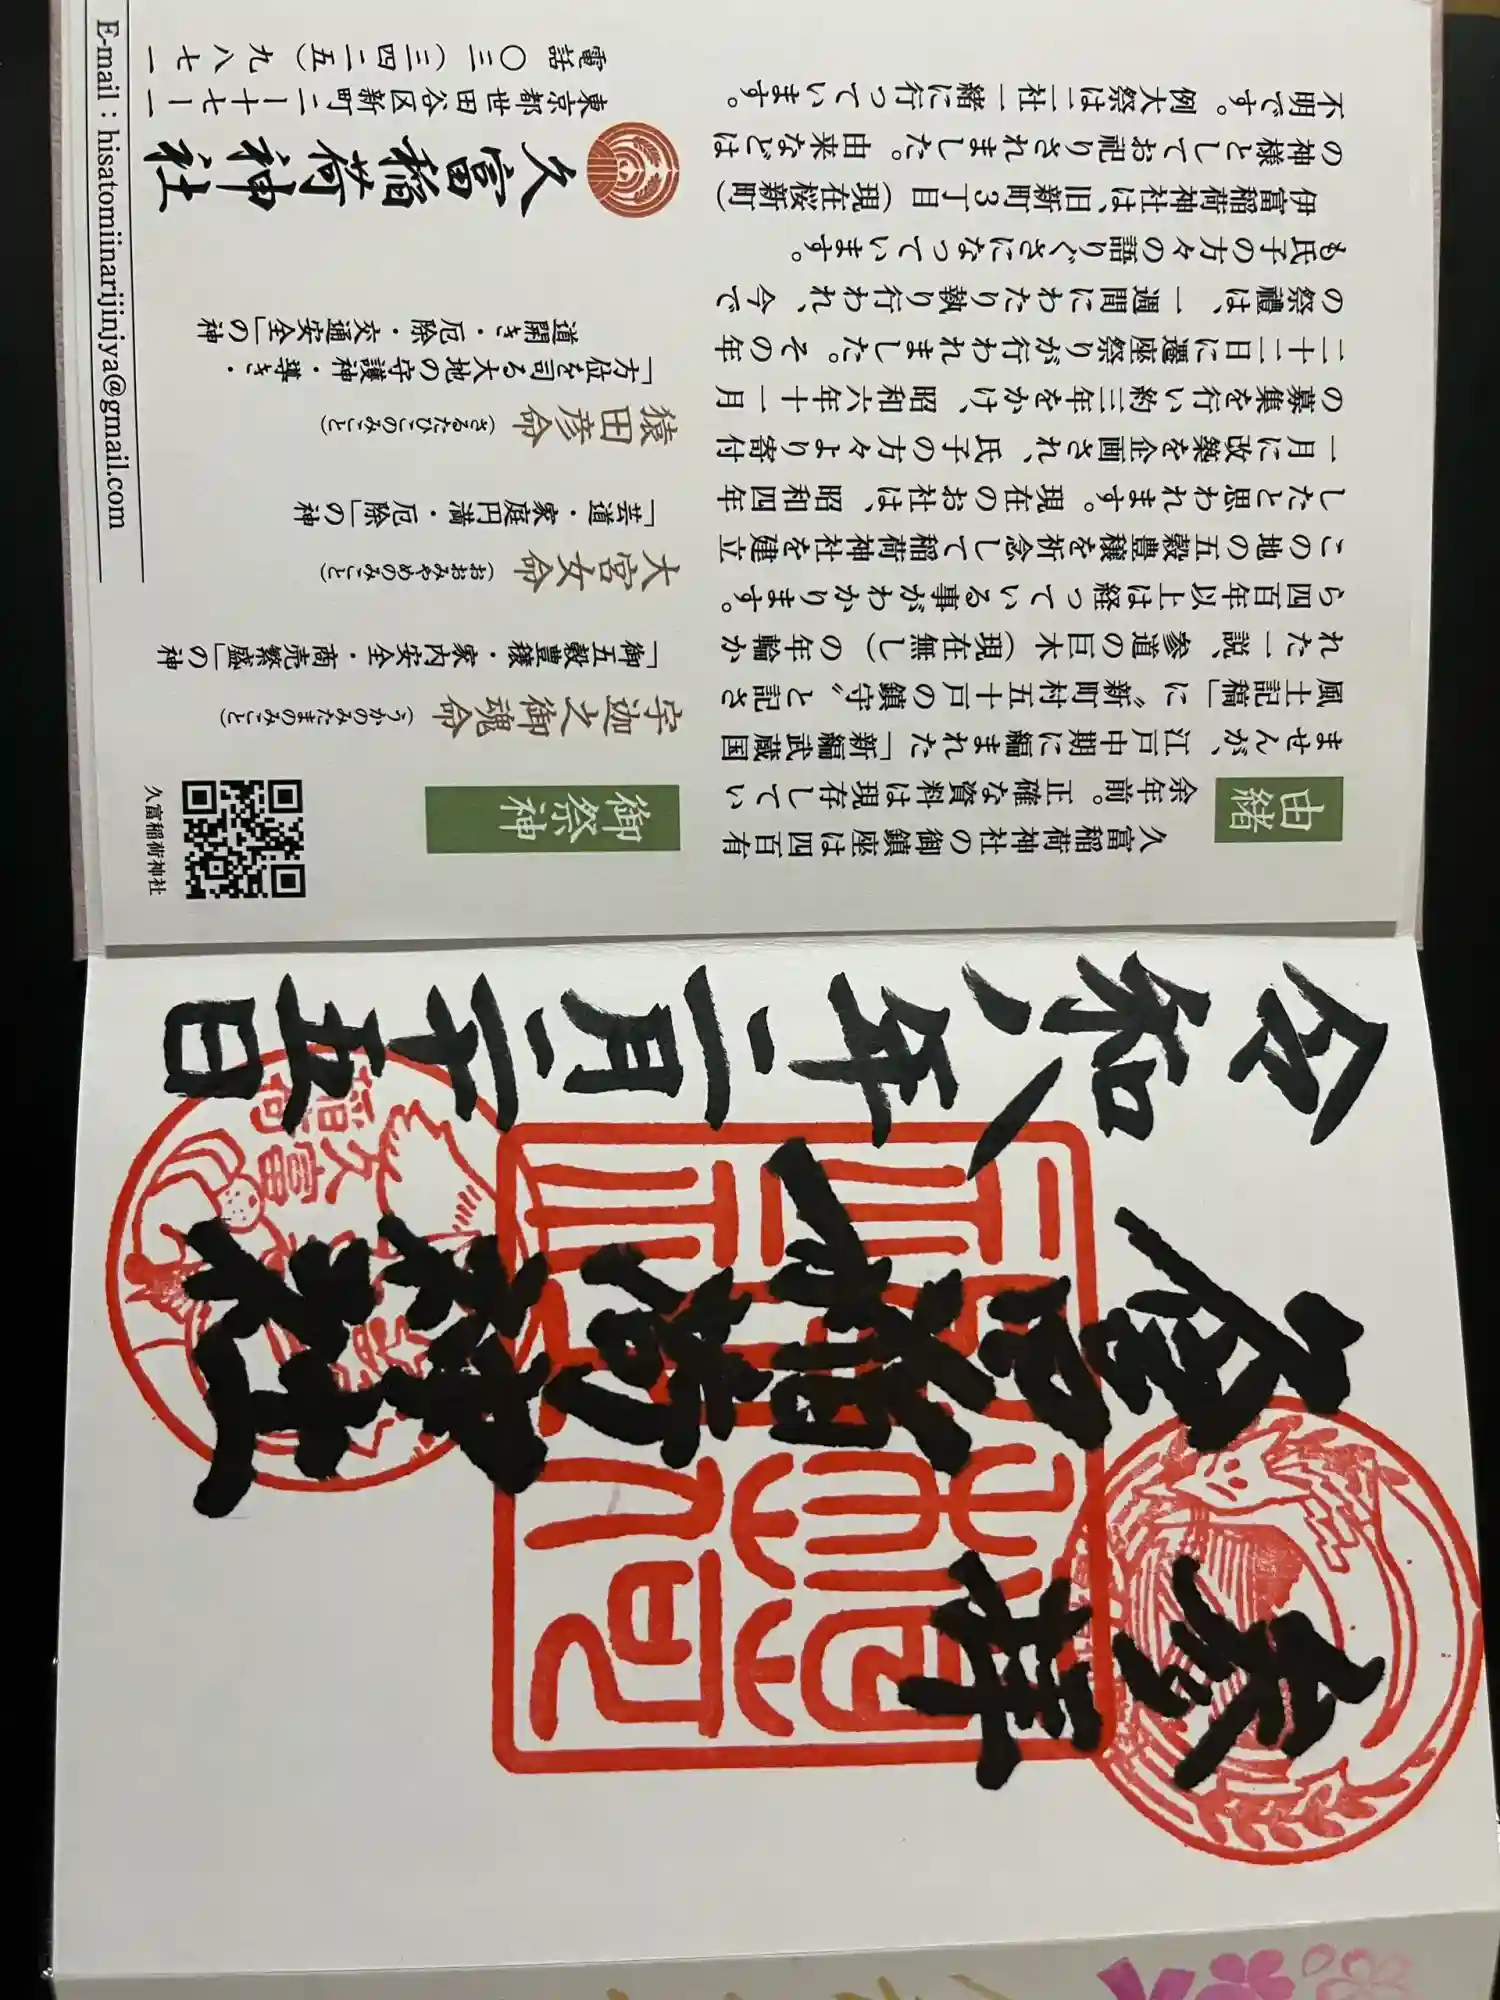 由緒
久富稲荷神社の御鎮座は四百有
余年前。正確な資料は現存してい
ませんが、江戸中期に編まれた「新編武蔵国
風土記稿」に〝新町村五十戸の鎮守〟と記さ
れた一説、参道の巨木（現在無し）の年輪か
ら四百年以上は経っている事がわかります。
この地の五穀豊穣を祈念して稲荷神社を建立
したと思われます。現在のお社は、昭和四年
一月に改築を企画され、氏子の方々より寄付
の募集を行い約三年をかけ、昭和六年十一月
二十二日に遷座祭りが行われました。その年
の祭禮は、一週間にわたり執り行われ、今で
も氏子の方々の語りぐさになっています。
伊富稲荷神社は、旧新町3丁目（現在桜新町）
の神様としてお祀りされました。由来などは
不明です。例大祭は二社一緒に行っています。
御祭神
宇迦之御魂命（うかのみたまのみこと）
「御五穀豊穣・家内安全・商売繁盛」の神
大宮女命（おおみやめのみこと）
「芸道・家庭円満・厄除」の神
猿田彦命（さるたひこのみこと）
「方位を司る大地の守護神・導き・
道開き・厄除・交通安全」の神
久富稲荷神社
東京都世田谷区新町二ー十七ー一
電話 〇三（三四二五）九八七一
E-mail：hisatomiinarijinjya@gmail.com
久富稲荷神社
令和八年二月二十五日
奉拝
久富稲荷神社
久富
稲荷